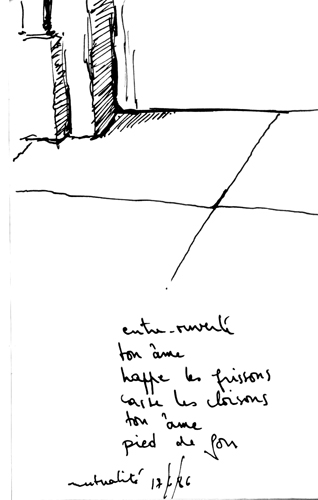 entre-ouverte
ton âme
happe les frissons
casse les cloisons
ton âme
pied de
mutualité